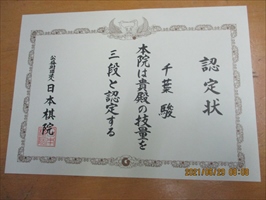 認定状
千葉駿
本院は貴殿の技量を
三段と認定する
公益財団法人 日本棋院